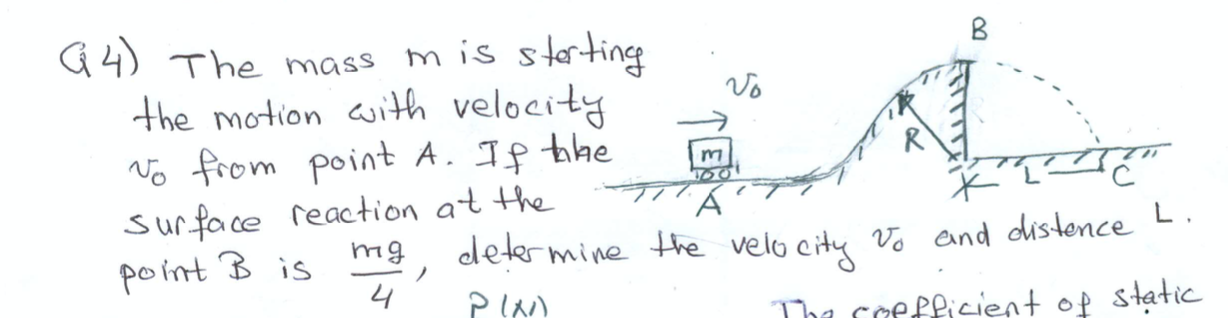 Q4) The mass m is sterting
the motion with velocity
v₀ from point A. If the
surface reaction at the
point B is mg/4, determine the velocity v₀ and distence L.
P(N)
The coefficient of static
B
v₀
m
R
A
L
C